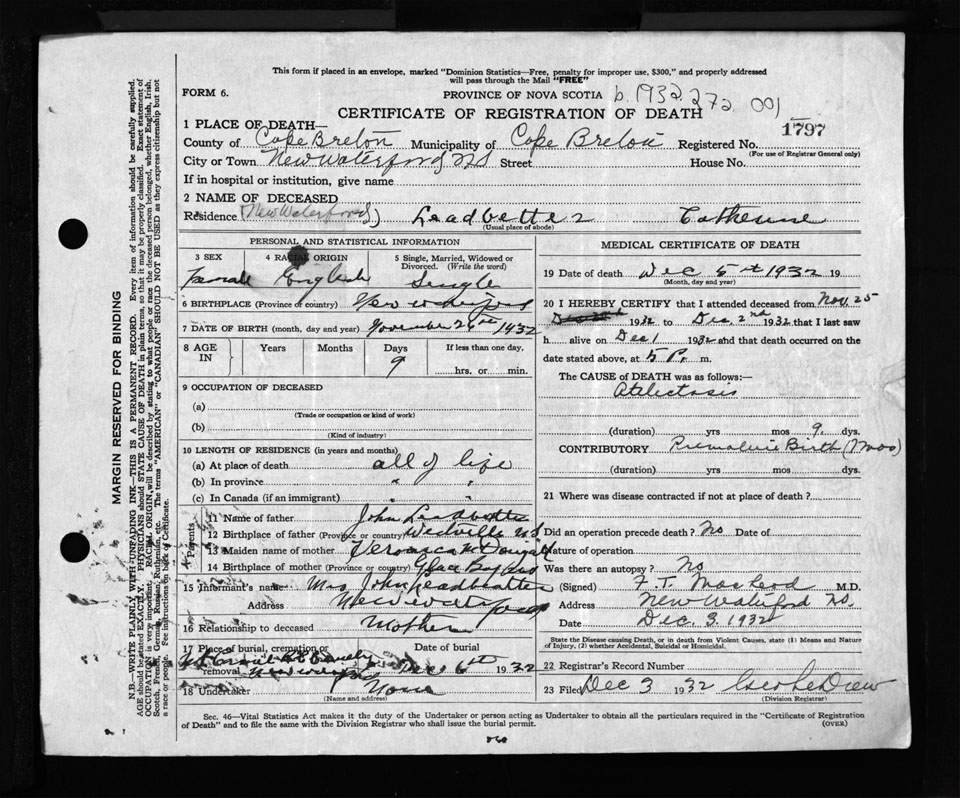 This form if placed in an envelope, marked "Dominion Statistics—Free, penalty for improper use, $300," and properly addressed
will pass through the Mail "FREE"
FORM 6.
PROVINCE OF NOVA SCOTIA b. 1932 272 001
CERTIFICATE OF REGISTRATION OF DEATH
1 PLACE OF DEATH—
1797
County of Cape Breton Municipality of Cape Breton Registered No.
(For use of Registrar General only)
City or Town New Waterford NS Street House No.
If in hospital or institution, give name
2 NAME OF DECEASED
Residence (New Waterford) Leadbetter Catherine
(Usual place of abode)
PERSONAL AND STATISTICAL INFORMATION
3 SEX 4 RACIAL ORIGIN 5 Single, Married, Widowed or
Divorced. (Write the word)
Female English Single
6 BIRTHPLACE (Province or country) New Waterford
7 DATE OF BIRTH (month, day and year) November 26th 1932
8 AGE IN Years Months Days If less than one day,
9
hrs. or min.
9 OCCUPATION OF DECEASED
(a)
(Trade or occupation or kind of work)
(b)
(Kind of industry)
10 LENGTH OF RESIDENCE (in years and months)
(a) At place of death all of life
(b) In province " "
(c) In Canada (if an immigrant) " "
Parents
11 Name of father John Leadbetter
12 Birthplace of father (Province or country) Westville NS
13 Maiden name of mother Veronica
14 Birthplace of mother (Province or country) Glace Bay
15 Informant's name Mrs John Leadbetter
Address New Waterford
16 Relationship to deceased Mother
17 Place of burial, cremation or Date of burial
removal New Waterford Dec 6th 1932
18 Undertaker None
(Name and address)
MEDICAL CERTIFICATE OF DEATH
19 Date of death Dec 5th 1932 19
(Month, day and year)
20 I HEREBY CERTIFY that I attended deceased from Nov. 25
1932 to Dec. 2nd 1932 that I last saw
h alive on Dec 1 1932 and that death occurred on the
date stated above, at 5 P. m.
The CAUSE of DEATH was as follows:—
Atelectasis
(duration) yrs mos 9 dys.
CONTRIBUTORY Premature Birth (7 mos)
(duration) yrs mos dys.
21 Where was disease contracted if not at place of death?
Did an operation precede death? No Date of
Nature of operation
Was there an autopsy? No
(Signed) F. T. MacLeod M.D.
Address New Waterford NS.
Date Dec. 3. 1932
State the Disease causing Death, or in death from Violent Causes, state (1) Means and Nature
of Injury, (2) whether Accidental, Suicidal or Homicidal.
22 Registrar's Record Number
23 Filed Dec 3 1932
(Division Registrar)
Sec. 46—Vital Statistics Act makes it the duty of the Undertaker or person acting as Undertaker to obtain all the particulars required in the "Certificate of Registration
of Death" and to file the same with the Division Registrar who shall issue the burial permit.
(OVER)
MARGIN RESERVED FOR BINDING
N.B.—WRITE PLAINLY WITH UNFADING INK—THIS IS A PERMANENT RECORD. Every item of information should be carefully supplied.
AGE should be stated EXACTLY. PHYSICIANS should STATE CAUSE OF DEATH in plain terms, so that it may be properly classified. Exact statement of
OCCUPATION is very important. RACIAL ORIGIN will be described by stating to what people or race the deceased person belonged, whether English, Irish,
Scotch, French, German, Russian, Ruthenian, etc. The terms "AMERICAN" or "CANADIAN" SHOULD NOT BE USED as they express citizenship but not
a race or people. See instructions on back of Certificate.